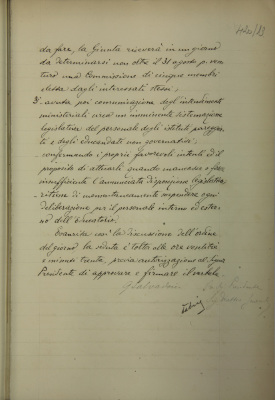 da fare, la Giunta riceverà in un giorno
da determinarsi non oltre il 31 agosto p. ven-
turo una Commissione di cinque membri
eletta dagli interessati stessi;
avuta poi comunicazione degl'intendimenti
ministeriali circa un imminente sistemazione
legislativa del personale degli istituti pareggia-
ti e degli Educandati non governativi;
confermando i proprii favorevoli intenti ed il
proposito di attuarli quando mancasse o fosse
insufficiente l'annunciata disposizione legislativa
ritiene di momentaneamente sospendere ogni
deliberazione per il personale interno ed ester-
no dell'Educatorio.
Esaurita così la discussione dell'ordine
del giorno la seduta è tolta alle ore ventitrè
e minuti trenta, previa autorizzazione al Signor
Presidente di approvare e firmare il verbale.